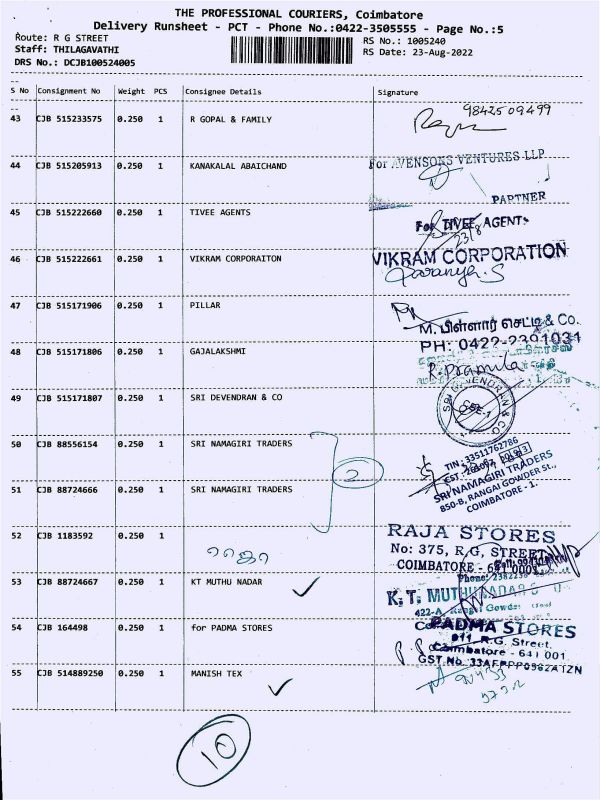 THE PROFESSIONAL COURIERS, Coimbatore
Delivery Runsheet - PCT - Phone No.:0422-3505555 - Page No.:5
Route: R G STREET
RS No.: 1005240
Staff: THILAGAVATHI
RS Date: 23-Aug-2022
DRS No.: DCJB100524005
S No Consignment No Weight PCS Consignee Details Signature
43 CJB 515233575 0.250 1 R GOPAL & FAMILY
9842509499
44 CJB 515205913 0.250 1 KANAKALAL ABAICHAND
For AVENSONS VENTURES LLP
PARTNER
45 CJB 515222660 0.250 1 TIVEE AGENTS
For TIVEE AGENTS
23/8
46 CJB 515222661 0.250 1 VIKRAM CORPORAITON
VIKRAM CORPORATION
Saranya.S
47 CJB 515171906 0.250 1 PILLAR
M. பிள்ளார் செட்டி & Co.
PH: 0422-2391031
48 CJB 515171806 0.250 1 GAJALAKSHMI
R. Pramila
49 CJB 515171807 0.250 1 SRI DEVENDRAN & CO
SRI DEVENDRAN & CO
CBE-1
50 CJB 88556154 0.250 1 SRI NAMAGIRI TRADERS
2
TIN: 33511762786
SRI NAMAGIRI TRADERS
850-B, RANGAI GOWDER ST.,
COIMBATORE - 1.
51 CJB 88724666 0.250 1 SRI NAMAGIRI TRADERS
52 CJB 1183592 0.250 1
RAJA STORES
No: 375, R.G. STREET
COIMBATORE - 641 0001
Phone: 2382236
53 CJB 88724667 0.250 1 KT MUTHU NADAR
K.T. MUTHU NADAR
422-A, Rangai Gowder
54 CJB 164498 0.250 1 for PADMA STORES
PADMA STORES
911, R.G. Street,
Coimbatore - 641 001
55 CJB 514889250 0.250 1 MANISH TEX
10